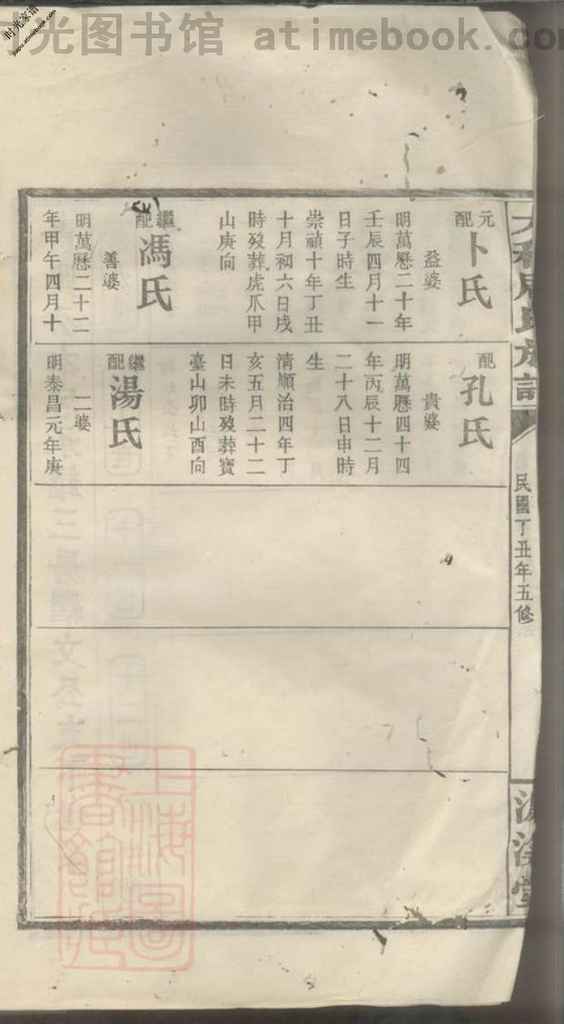 时光图书馆 atimebook.com
族譜
民國丁丑年五修
元配卜氏
益婆
明萬曆二十年
壬辰四月十一
日子時生
崇禎十年丁丑
十月初六日戌
時歿葬虎爪甲
山庚向
繼配馮氏
善婆
明萬曆二十二
年甲午四月十
配孔氏
貴婆
明萬曆四十四
年丙辰十二月
二十八日申時
生
清順治四年丁
亥五月二十二
日未時歿葬寶
臺山卯山酉向
繼配湯氏
二婆
明泰昌元年庚
上海圖書館藏